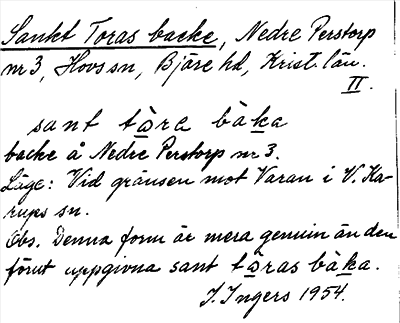 Sankt Toras backe, Nedre Perstorp
nr 3, Hovs sn, Bjäre hd, Krist. län.
II.
sant tòra bàka
backe å Nedre Perstorp nr 3.
Läge: Vid gränsen mot Varan i V. Ka-
rups sn.
Obs. Denna form är mera genuin än den
förut uppgivna sant tòras bàka.
I. Ingers 1954.